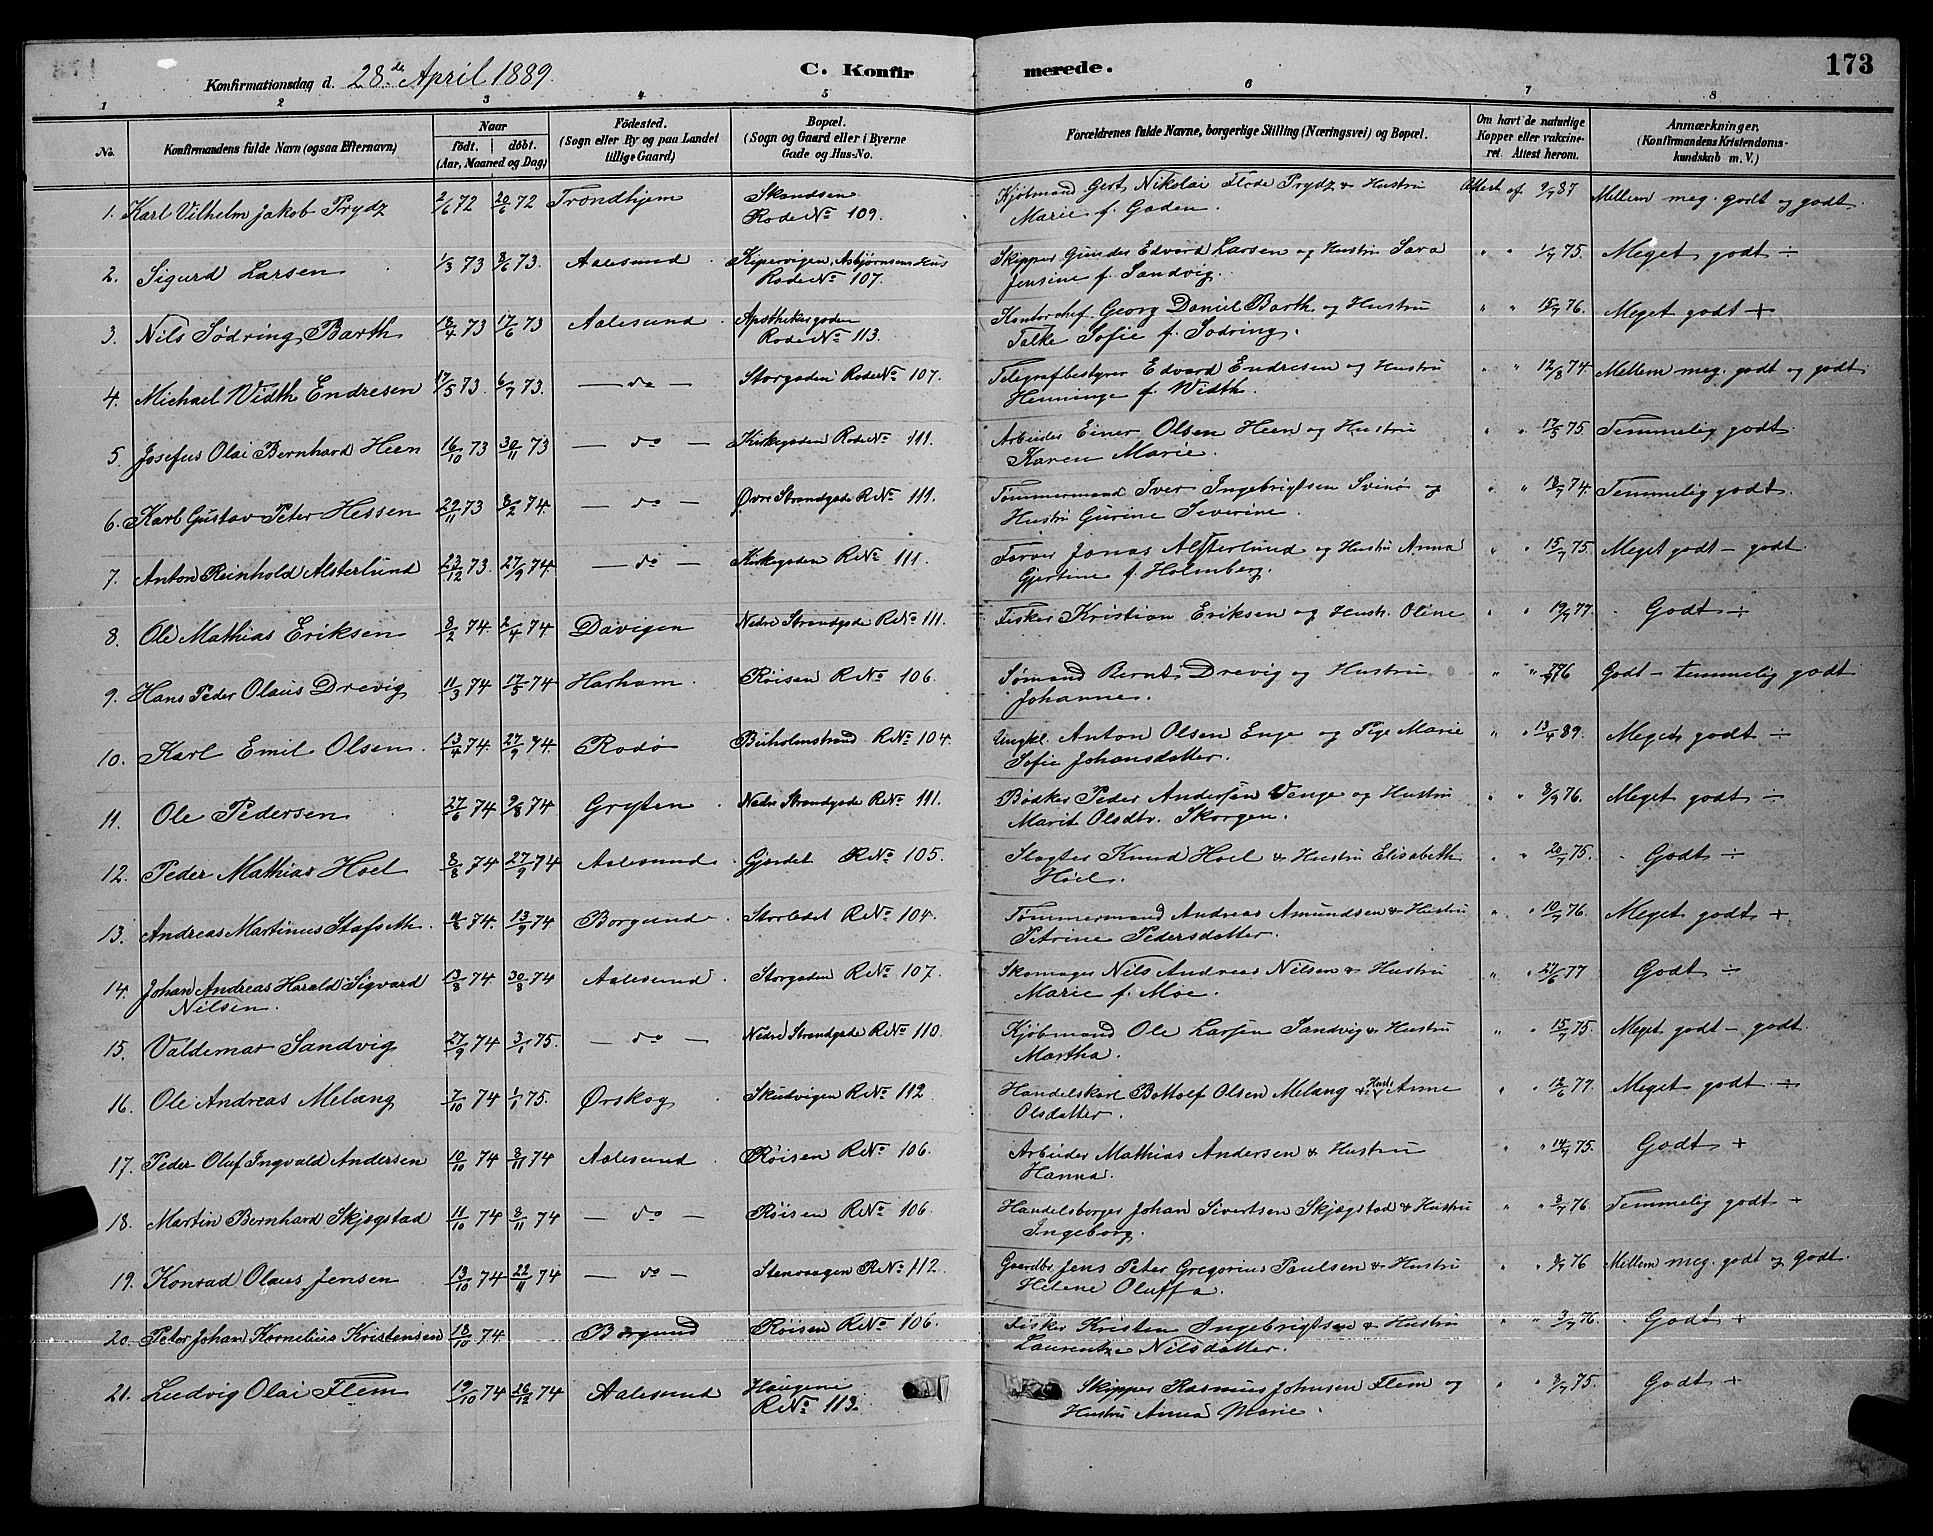 Konfirmationsdag d. 28de April 1889. C. Konfirmerede. 173
1 2 3 4 5 6 7 8
No. Konfirmandens fulde Navn (ogsaa Efternavn) Naar født. døbt. (Aar, Maaned og Dag) Fødested. (Sogn eller By og paa Landet tillige Gaard) Bopæl. (Sogn og Gaard eller i Byerne Gade og Hus-No. Forældrenes fulde Navne, borgerlige Stilling (Næringsvei) og Bopæl. Om havt de naturlige Kopper eller vakcineret. Attest herom. Anmærkninger, (Konfirmandens Kristendomskundskab m. V.)
1. Karl Vilhelm Jakob Prydz 2/6 72 20/6 72 Trondhjem Skandsen Kjøbmand Gert Nikolai Flode Prydz & Hustru Attest af 9/7 87 Mellem meg. godt og godt.
Rode No 109. Marie f. Gaden.
2. Sigurd Larsen 1/3 73 8/6 73. Aalesund Kipervigen, Asbjørnsens Hus Skipper Gunder Edvard Larsen og Hustru Sara " " 1/7 75. Meget godt ÷
Rode No 107. Jensine f. Sandvig.
3. Nils Sødring Barth 18/4 73 17/6 73 Aalesund Apothekergaden Kontorchef Georg Daniel Barth og Hustru " " 15/7 76. Meget godt +
Rode No 113. Falke Sofie f. Sødring.
4. Michael Width Endresen 17/5 73. 6/7 73. — do — Storgaden Rode No 107. Telegrafbestyrer Edvard Endresen og Hustru " " 12/8 74 Mellem meg. godt og godt
Henninge f. Width.
5. Josefus Olai Bernhard Heen 16/10 73 30/11 73 — do — Kirkegaden Rode No 111. Arbeider Einer Olsen Heen og Hustru " " 17/5 75. Temmelig godt.
Karen Marie.
6. Karl Gustav Peter Hessen 22/11 73 8/2 74. — do — Øvre Strandgade R No 111. Tømmermand Iver Ingebrigtsen Svinø og " " 18/7 74. Temmelig godt.
Hustru Gurine Severine.
7. Anton Reinhold Alsterlund 23/12 73. 27/9 74. — do — Kirkegaden R No 111. Farver Jonas Alsterlund og Hustru Anna " " 15/7 75. Meget godt – godt.
Gjertine f. Holmberg.
8. Ole Mathias Eriksen 8/2 74. 2/4 74 Davigen Nedre Strandgade R No 111. Fisker Kristian Eriksen og Hustr. Oline " " 19/7 77. Godt ÷
9. Hans Peder Olaus Drevig 11/3 74 17/5 74 Harham. Røisen R No 106. Sømand Bernt Drevig og Hustru " " Godt – temmelig godt
Johanne.
10. Karl Emil Olsen. 13/4 74. 27/9 74. Rodø Buholmstrand R No 104. Ungkl. Anton Olsen Enge og Pige Marie " " 13/4 89. Meget godt ÷
Sofie Johansdatter.
11. Ole Pedersen 27/6 74 9/8 74 Grytten Nedre Strandgade R No 111. Bødker Peder Andersen Venge og Hustru " " 8/9 76. Meget godt ÷
Marit Olsdtr. Skorgen.
12. Peder Mathias Hoel 8/8 74 27/9 74 Aalesund Gjerdet R No 105. Slagter Knud Hoel & Hustru Elisabeth " " 20/7 75. Godt ÷
Hoel.
13. Andreas Martinus Stafseth. 11/8 74. 13/9 74 Borgund. Storledet R No 104. Tømmermand Andreas Amundsen & Hustru " " 10/7 76. Meget godt +
Petrine Pedersdatter.
14. Johan Andreas Harald Sigvard 13/8 74. 30/8 74 Aalesund. Storgaden R No 107. Skomager Nils Andreas Nilsen & Hustru " " 27/6 77 Godt ÷
Nilsen. Marie f. Moe.
15. Valdemar Sandvig 27/9 74 3/1 75. — do — Nedre Strandgade R No 110. Kjøbmand Ole Larsen Sandvig & Hustru " " 15/7 75. Meget godt – godt.
Martha.
16. Ole Andreas Melang 7/10 74 1/1 75. Ørskog Skutvigen R No 112 Handelskarl Bottolf Olsen Melang & Hust. Anne " " 12/6 77. Meget godt ÷
Olsdatter.
17. Peder Oluf Ingvald Andersen 10/10 74 8/11 74 Aalesund. Røisen R No 106. Arbeider Mathias Andersen & Hustru " " 14/7 75. Godt +
Hanna.
18. Martin Bernhard Skjegstad 11/10 74 8/11 74 — do — Røisen R No 106. Handelsborger Johan Sivertsen Skjegstad & Hustru " " 8/7 76. Temmelig godt +
Ingeborg.
19. Konrad Olaus Jensen 13/10 74 22/11 74 — do — Stenvaagen R No 112. Gaardbr. Jens Peter Gregorius Paulsen & Hustru " " 8/7 76 Mellem meg. godt og Godt.
Helene Oluffa.
20. Peter Johan Kornelius Kristensen 18/10 74 Borgund Røisen R No 106. Fisker Kristen Ingebrigtsen & Hustru " " 3/7 76. Godt +
Laurentze Nilsdatter.
21. Ludvig Olai Flem 19/10 74 26/12 74 Aalesund Haugene Skipper Rasmus Johnsen Flem og " " 8/7 75. Godt +
R No 113. Hustru Anna Marie.